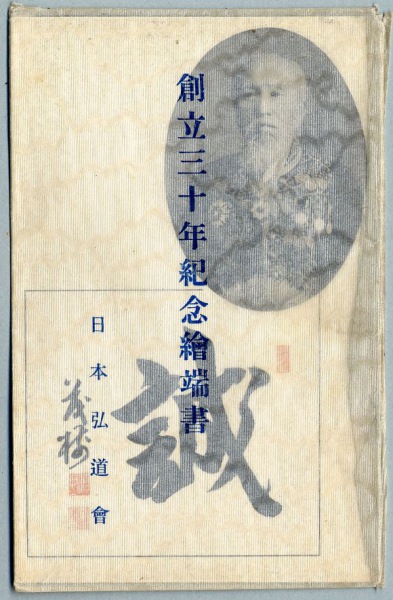 創立三十年紀念繪端書
誠
茂樹
日本弘道會